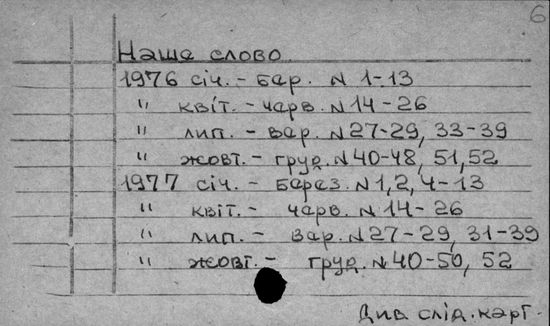 6
Наше слово
1976 січ. - бер. N 1-13
" квіт. - черв. N 14-26
" лип. - вер. N 27-29, 33-39
" жовт. - груд. N 40-48, 51, 52
1977 січ. - берез. N 1, 2, 4-13
" квіт. - черв. N 14-26
" лип. - вер. N 27-29, 31-39
" жовт. - груд. N 40-50, 52
Див слід. карт.